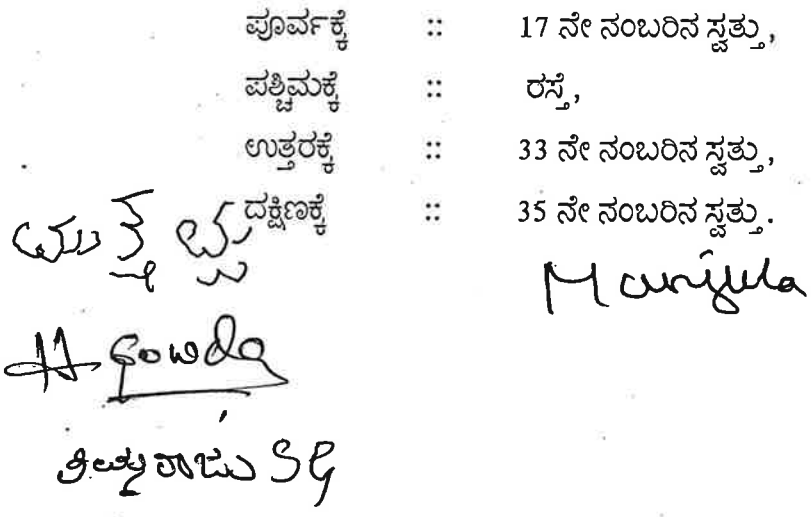 ಪೂರ್ವಕ್ಕೆ :: 17 ನೇ ನಂಬರಿನ ಸ್ವತ್ತು,
ಪಶ್ಚಿಮಕ್ಕೆ :: ರಸ್ತೆ,
ಉತ್ತರಕ್ಕೆ :: 33 ನೇ ನಂಬರಿನ ಸ್ವತ್ತು,
ದಕ್ಷಿಣಕ್ಕೆ :: 35 ನೇ ನಂಬರಿನ ಸ್ವತ್ತು.
Manjula
H Gowda